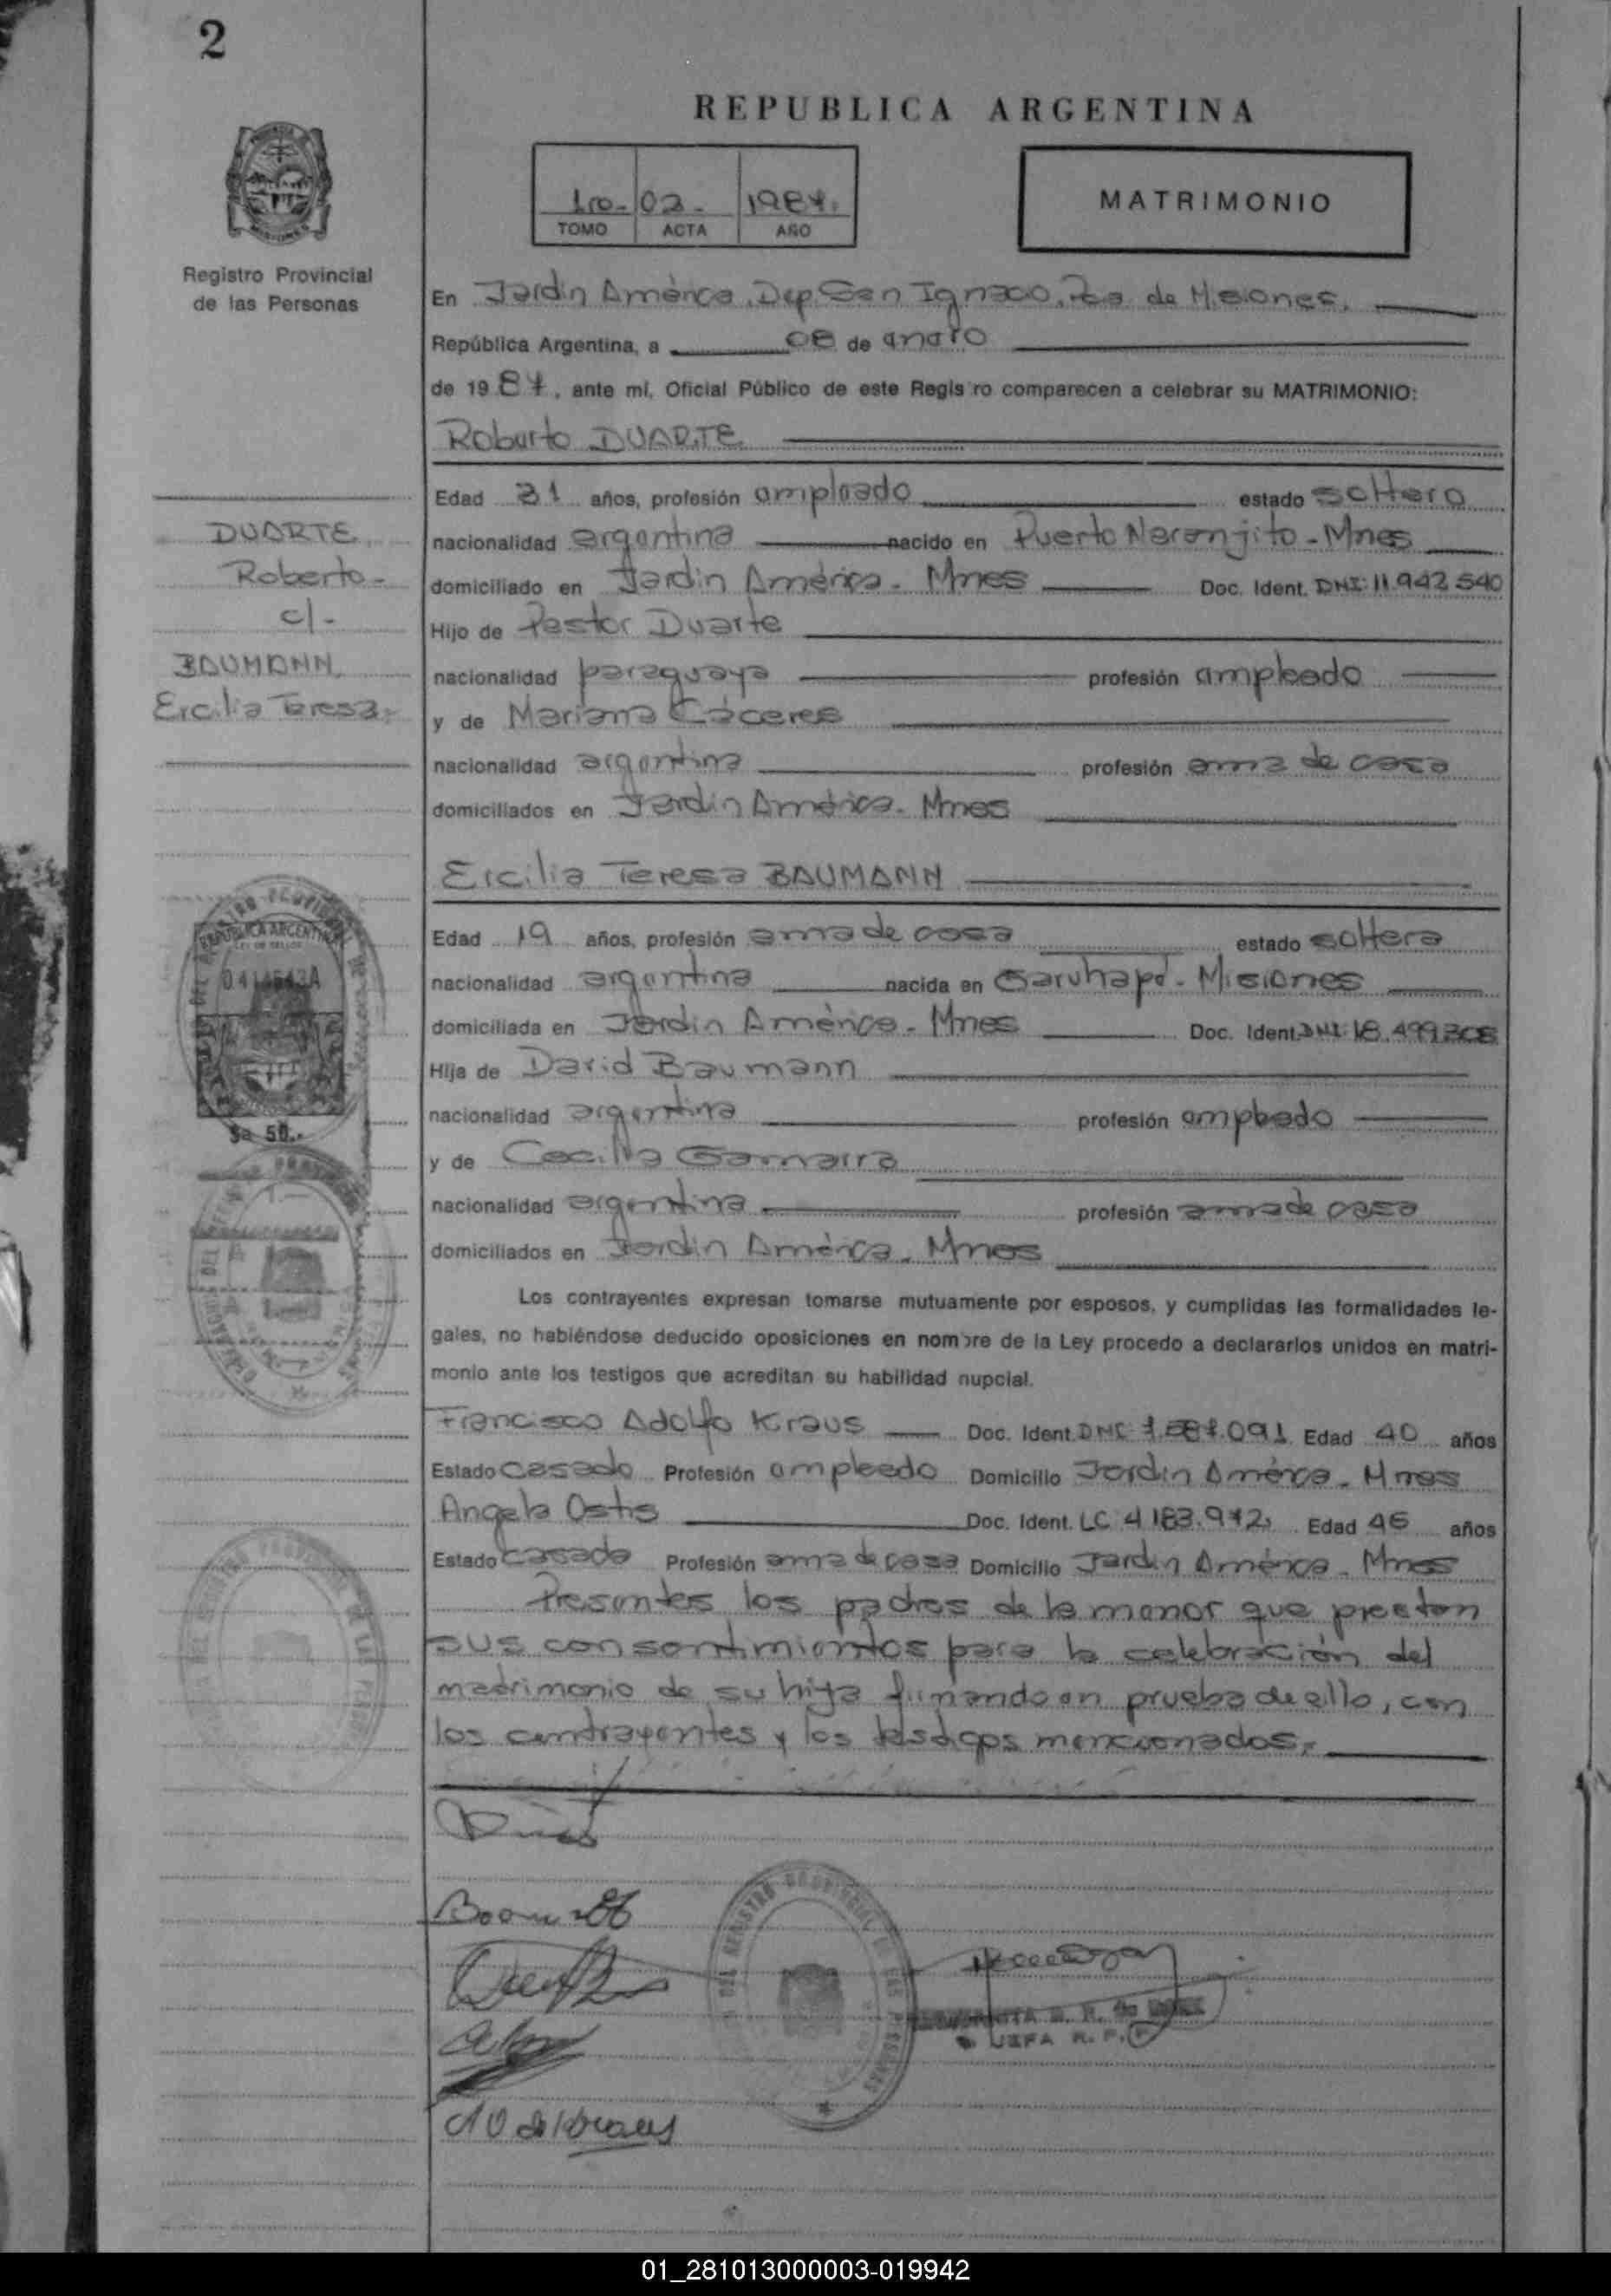 2
REPUBLICA ARGENTINA
1ro- 02- 1987.
TOMO ACTA AÑO
MATRIMONIO
Registro Provincial
de las Personas
En Jardín América, Dep. San Ignacio, Pcia de Misiones,
República Argentina, a 08 de enero
de 1987, ante mí, Oficial Público de este Registro comparecen a celebrar su MATRIMONIO:
Roberto DUARTE
Edad 31 años, profesión empleado estado soltero
nacionalidad argentina nacido en Puerto Naranjito - Mnes
domiciliado en Jardín América - Mnes Doc. Ident. DNI: 11.942.540
Hijo de Pastor Duarte
nacionalidad paraguaya profesión empleado
y de Mariana Cáceres
nacionalidad argentina profesión ama de casa
domiciliados en Jardín América - Mnes
DUARTE
Roberto -
c/-
BAUMANN
Ercilia Teresa -
Ercilia Teresa BAUMANN
Edad 19 años, profesión ama de casa estado soltera
nacionalidad argentina nacida en Garuhapé - Misiones
domiciliada en Jardín América - Mnes Doc. Ident. DNI: 18.499.308
Hija de David Baumann
nacionalidad argentina profesión empleado
y de Cecilia Gamarra
nacionalidad argentina profesión ama de casa
domiciliados en Jardín América - Mnes
REPUBLICA ARGENTINA
LEY DE SELLOS
0414643A
$a 50.-
Los contrayentes expresan tomarse mutuamente por esposos, y cumplidas las formalidades le-
gales, no habiéndose deducido oposiciones en nombre de la Ley procedo a declararlos unidos en matri-
monio ante los testigos que acreditan su habilidad nupcial.
Francisco Adolfo Kraus Doc. Ident. 7.587.091 Edad 40 años
Estado casado Profesión empleado Domicilio Jardín América - Mnes
Angela Ostis Doc. Ident. LC 4.183.972 Edad 46 años
Estado casada Profesión ama de casa Domicilio Jardín América - Mnes
Presentes los padres de la menor que prestan
sus consentimientos para la celebración del
matrimonio de su hija firmando en prueba de ello, con
los contrayentes y los testigos mencionados.-
DEL REGISTRO PROVINCIAL DE LAS PERSONAS
JEFA R. P.
01_281013000003-019942